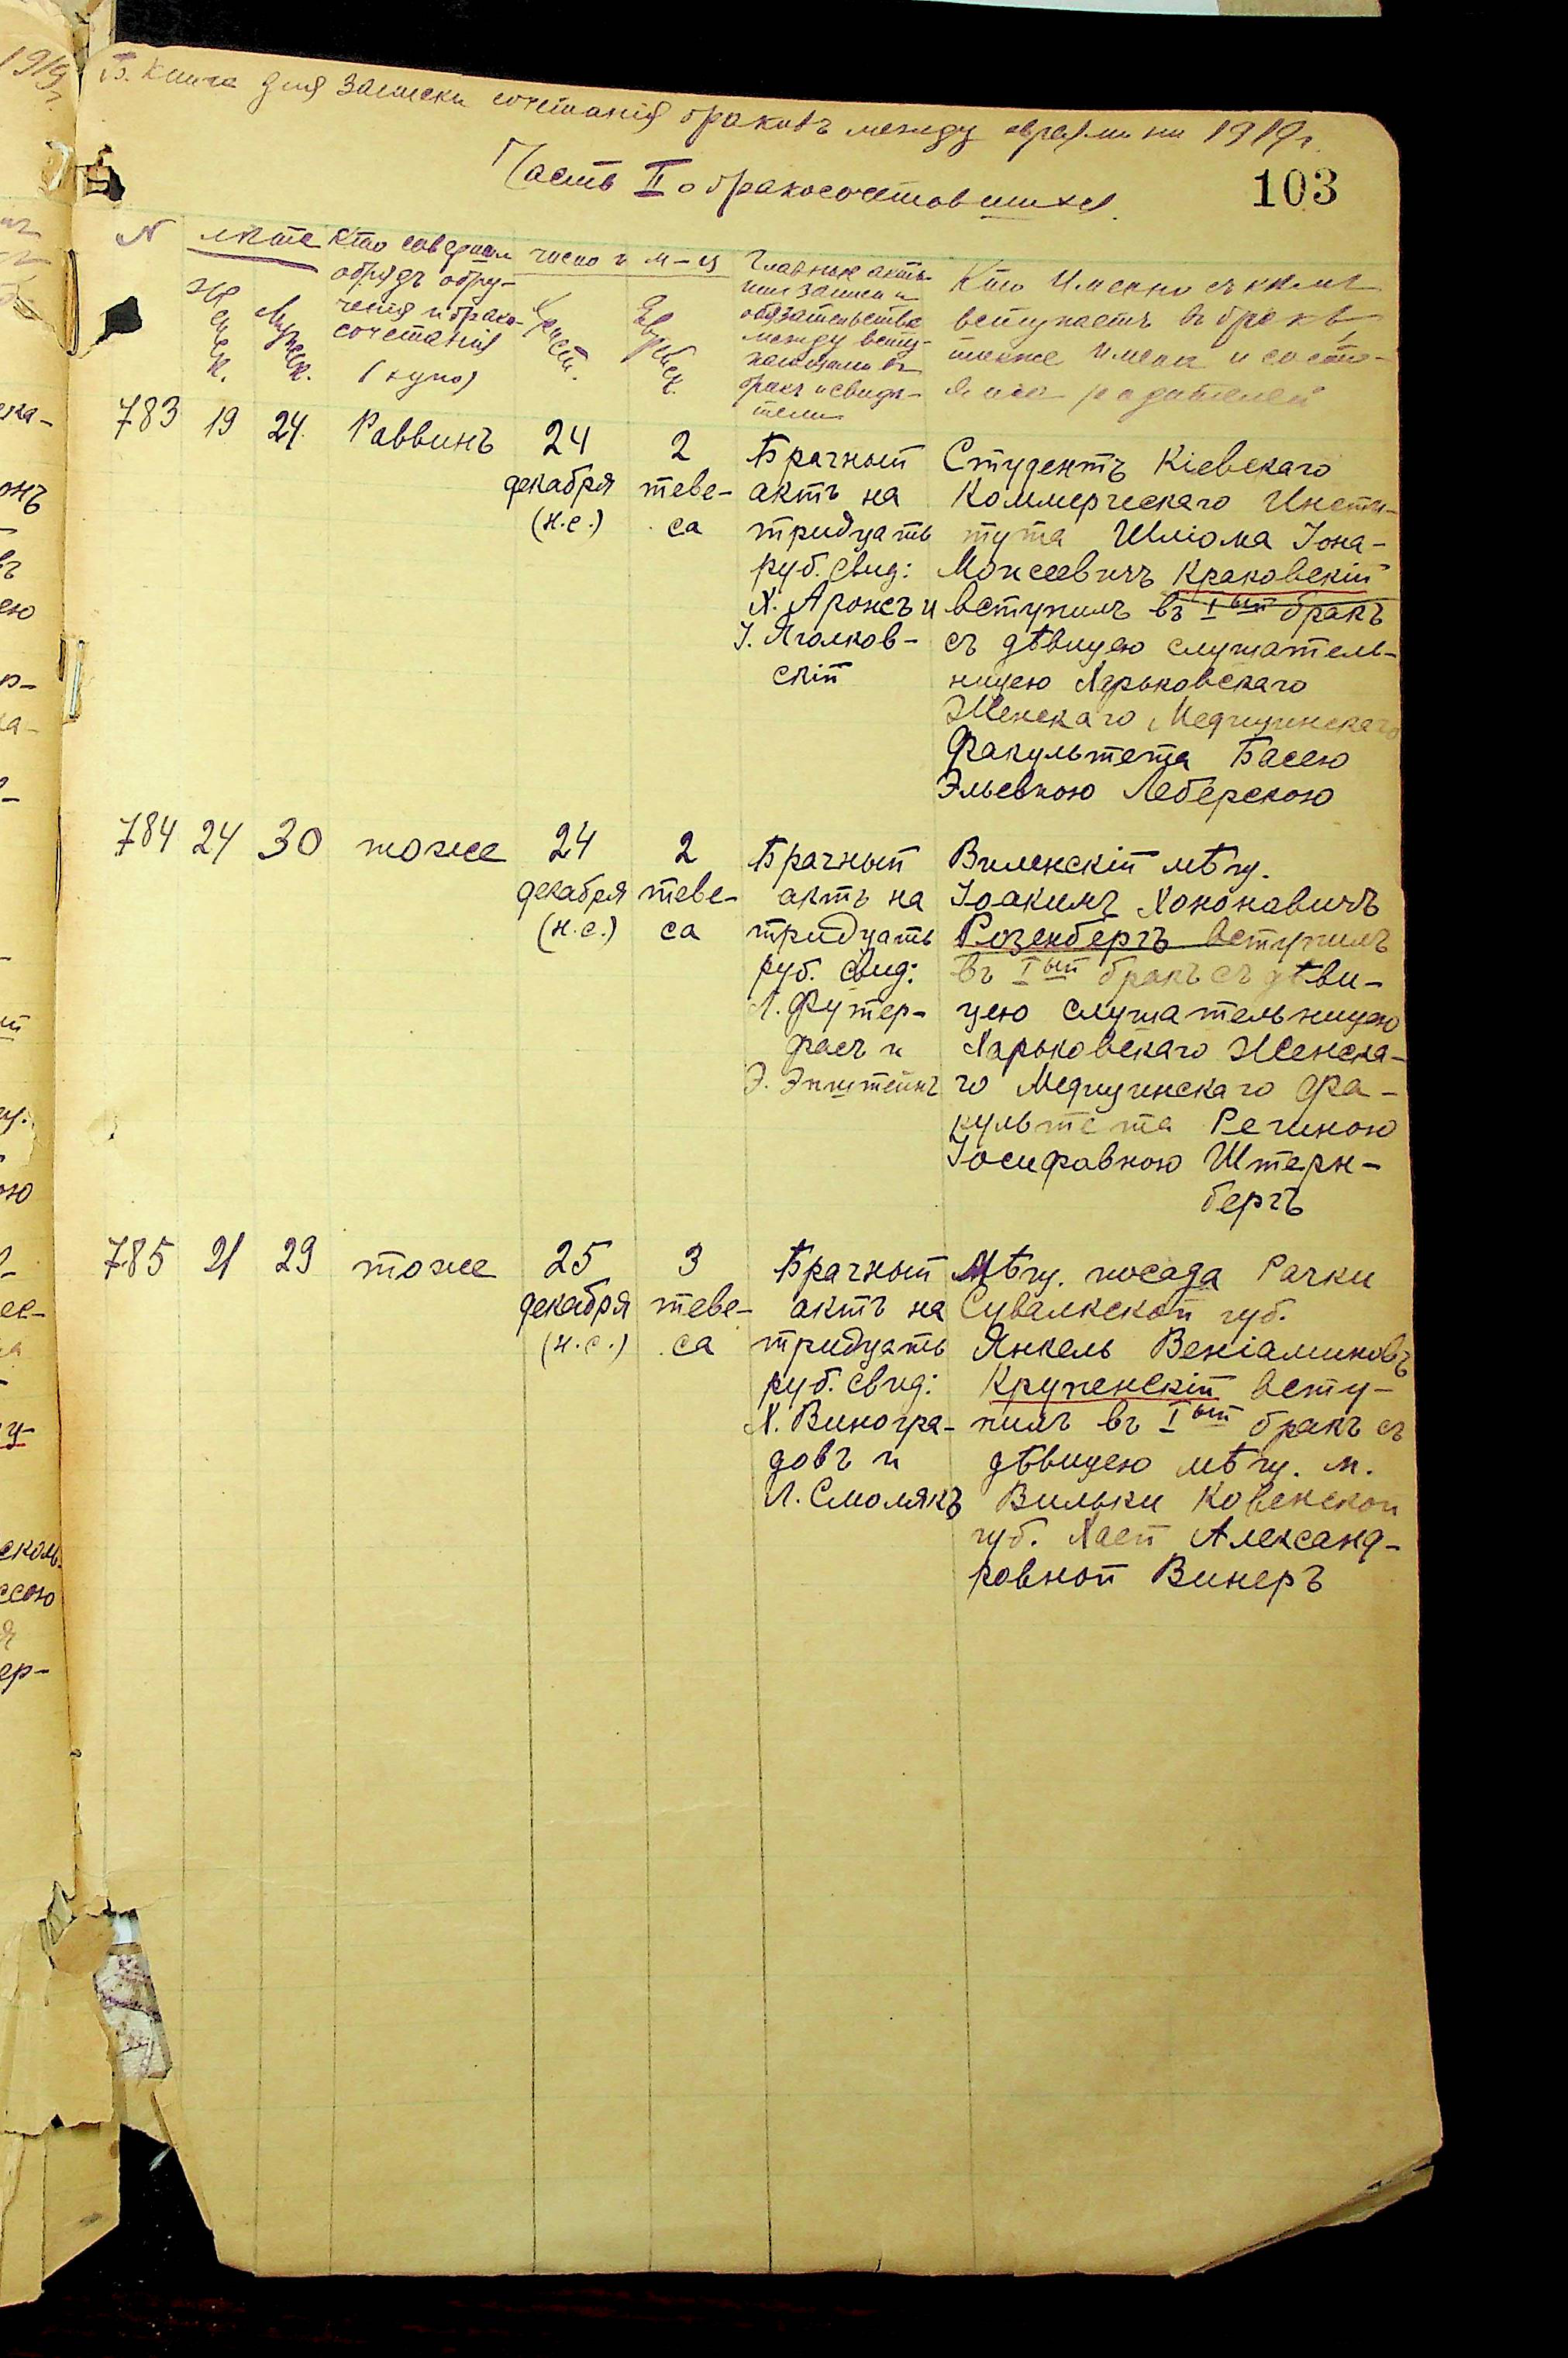 Б. Книга для записки сочетанія браковъ между евреями на 1919 г.
Часть II о бракосочетовшихся.
103
N
лѣта
Женск.
Мужеск.
Кто совершал
обрядъ обру-
ченія и брако-
сочетанія
(хупо)
число и м-ц
Христ.
Еврейск.
Главные акты
или записи и
обязательства
между всту-
пающими въ
бракъ и свидѣ-
тели
Кто именно съ кѣмъ
вступаетъ въ бракъ,
также имена и состо-
яніе родителей
783 19 24 Раввинъ
24
декабря
(н.с.)
2
теве-
са
Брачный
актъ на
тридцать
руб. свид:
Х. Аронсъ и
І. Яголков-
скій
Студентъ Кіевскаго
Коммерческаго Инсти-
тута Шліома Іона-
Моисеевичъ Краковскій
вступилъ въ Iый бракъ
съ дѣвицею слушатель-
ницею Харьковскаго
Женскаго Медицинскаго
Факультета Басею
Эльевною Леберскою
784 24 30 тоже
24
декабря
(н.с.)
2
теве-
са
Брачный
актъ на
тридцать
руб. свид:
Л. Футер-
фасъ и
Э. Эпштейнъ
Виленскій мѣщ.
Іоакимъ Хононавичъ
Розенбергъ вступилъ
въ Iый бракъ съ дѣви-
цею слушательницею
Харьковскаго Женска-
го Медицинскаго Фа-
культета Региною
Іосифовною Штерн-
бергъ
785 21 29 тоже
25
декабря
(н.с.)
3
теве-
са
Брачный
актъ на
тридцать
руб. свид:
Х. Виногра-
довъ и
Л. Смолякъ
Мѣщ. посада Рачки
Сувалкской губ.
Янкель Веніаминовъ
Крупенскій всту-
пилъ въ Iый бракъ съ
дѣвицею мѣщ. м.
Вильки Ковенской
губ. Хаей Александ-
ровной Винеръ